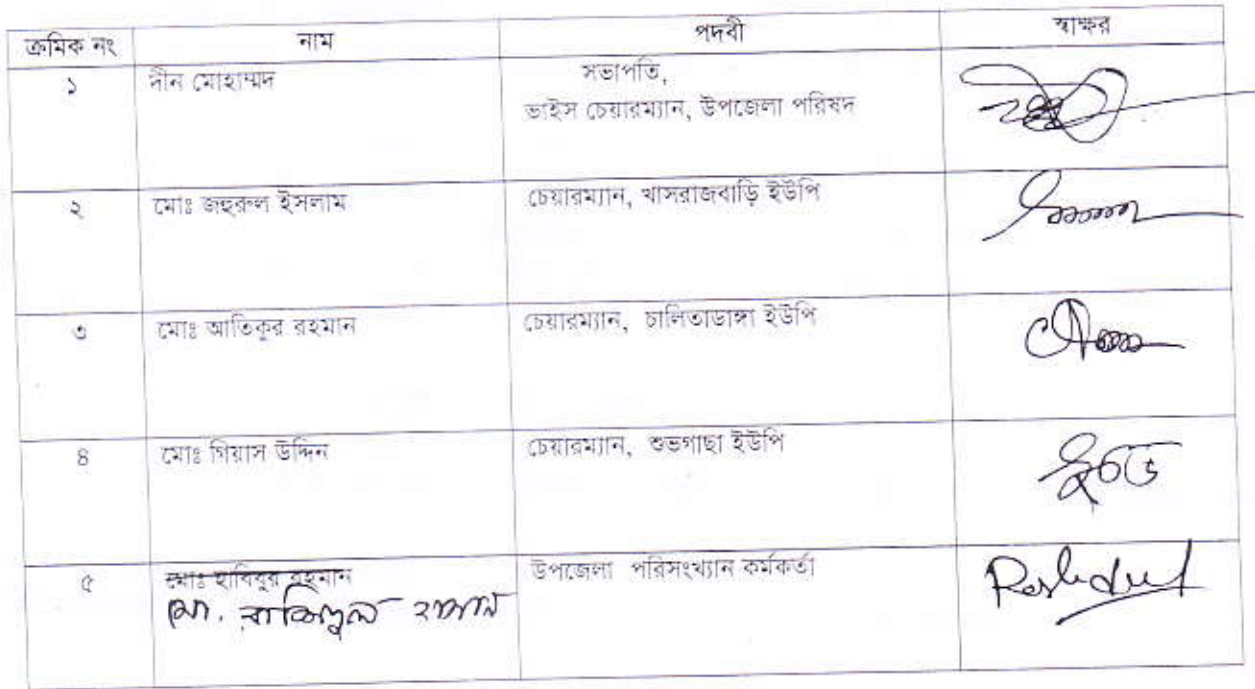 ক্রমিক নং নাম পদবী স্বাক্ষর
১ দীন মোহাম্মদ সভাপতি,
ভাইস চেয়ারম্যান, উপজেলা পরিষদ
২ মোঃ জহুরুল ইসলাম চেয়ারম্যান, খাসরাজবাড়ি ইউপি
৩ মোঃ আতিকুর রহমান চেয়ারম্যান, চালিতাডাঙ্গা ইউপি
৪ মোঃ গিয়াস উদ্দিন চেয়ারম্যান, শুভগাছা ইউপি
৫ মোঃ হাবিবুর রহমান উপজেলা পরিসংখ্যান কর্মকর্তা
মো. হাসান